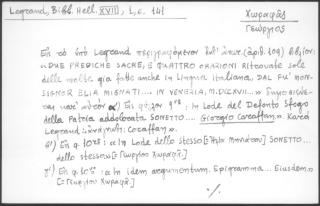 Legrand, Bibl. Hell. XVII, t, ε. 141
Χωραφᾶς
Γεώργιος
Ἐν τῷ ὑπὸ Legrand περιγραφομένῳ (ἀρ. 109) βιβλίῳ:
«DUE PREDICHE SACRE, E QUATTRO ORAZIONI Ritrovate sole
delle molte già fatte anche in Lingua Italiana, DAL FU' MON-
SIGNOR ELIA MIGNATI.... IN VENEZIA, M.DCXVII.»
α') Ἐν φύλλῳ 9ʳᵒ: in Lode del Defonto Sfogo
della Patria addolorata. SONETTO.... Giorgio Coraffan.» Κατὰ
Legrand: Coraffan.»
β') Ἐν φ. 10ʳᵒ: «In Lode dello stesso [= Ἠλία Μηνιάτου] SONETTO...
dello stesso» [= Γεωργίου Χωραφᾶ].
γ') Ἐν φ. 10ᵛᵒ: «In idem argumentum. Epigramma... Eiusdem»
[= Γεωργίου Χωραφᾶ].
./.